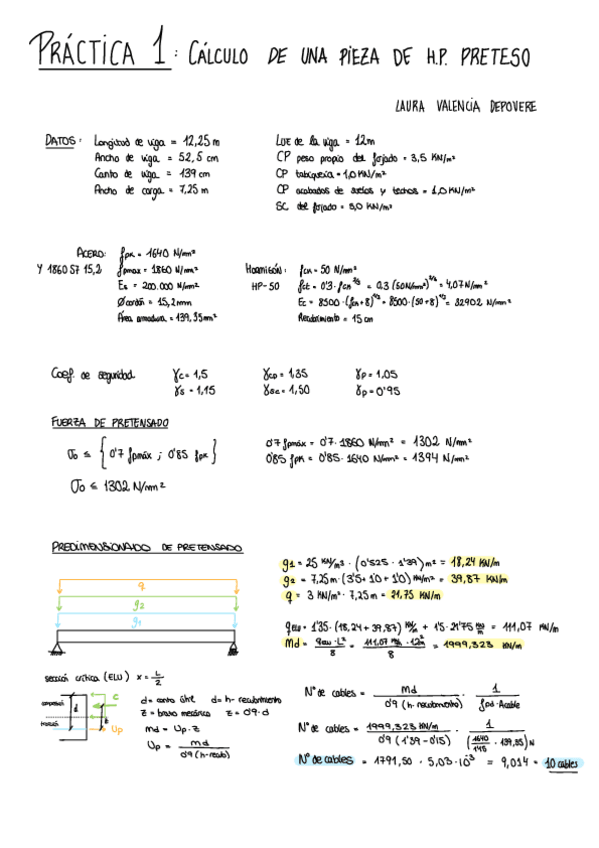 PRÁCTICA 1: CÁLCULO DE UNA PIEZA DE H.P. PRETESO
LAURA VALENCIA DEPOVERE
DATOS: Longitud de viga = 12,25 m
Ancho de viga = 52,5 cm
Canto de viga = 139 cm
Ancho de carga = 7,25 m
LUZ de la viga = 12m
CP peso propio del forjado = 3,5 KN/m²
CP tabiquería = 1,0 KN/m²
CP acabados de suelos y techos = 1,0 KN/m²
SC del forjado = 3,0 KN/m²
ACERO: fpk = 1640 N/mm²
Y 1860 S7 15,2 fpmax = 1860 N/mm²
Es = 200.000 N/mm²
Øcordón = 15,2mm
Área armadura = 139,35mm²
HORMIGÓN: fck = 50 N/mm²
HP-50 fct = 0'3 · fck^2/3 = 0,3 (50N/mm²)^2/3 = 4,07N/mm²
Ec = 8500 · (fck+8)^1/3 = 8500 · (50+8)^1/3 = 32902 N/mm²
Recubrimiento = 15 cm
Coef. de seguridad γc = 1,5 γcp = 1,35 γp = 1,05
γs = 1,15 γsc = 1,50 γp = 0'95
FUERZA DE PRETENSADO
σo ≤ { 0'7 fpmáx ; 0'85 fpk }
0'7 fpmáx = 0'7 · 1860 N/mm² = 1302 N/mm²
0'85 fpk = 0'85 · 1640 N/mm² = 1394 N/mm²
σo ≤ 1302 N/mm²
PREDIMENSIONADO DE PRETENSADO
q
g2
g1
g1 = 25 KN/m³ · (0'525 · 1'39) m² = 18,24 KN/m
g2 = 7,25m · (3'5 + 1'0 + 1'0) KN/m² = 39,87 KN/m
q = 3 KN/m² · 7,25 m = 21,75 KN/m
qelu = 1'35 · (18,24 + 39,87) KN/m + 1'5 · 21'75 KN/m = 111,07 KN/m
Md = qelu · L² / 8 = 111,07 KN/m · 12² / 8 = 1999,323 KN/m
sección crítica (ELU) x = L/2
compresión
tracción
d
c
z
Up
d = canto útil d = h - recubrimiento
z = brazo mecánico z = 0'9 · d
Md = Up · z
Up = Md / 0'9 (h-recub)
Nº de cables = Md / 0'9 (h-recubrimiento) · 1 / fpd · Acable
Nº de cables = 1999,323 KN/m / 0'9 (1'39 - 0'15) · 1 / (1640/1'15 · 139,35) N
Nº de cables = 1791,50 · 5,03 · 10³ = 9,014 = 10 cables